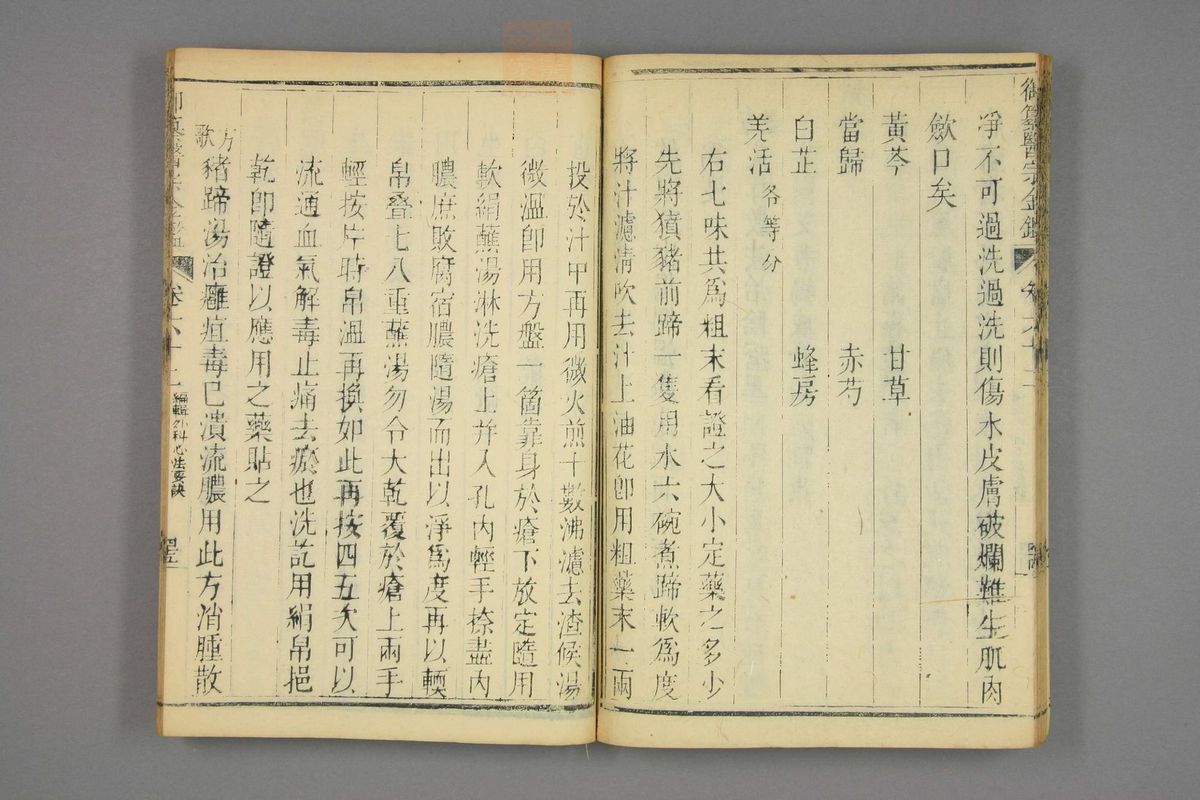 御纂醫宗金鑑
卷六十二
淨不可過洗過洗則傷水皮膚破爛難生肌肉
斂口矣
黃芩 甘草
當歸 赤芍
白芷 蜂房
羌活各等分
右七味共爲粗末看證之大小定藥之多少
先將豶豬前蹄一隻用水六碗煮蹄軟爲度
將汁濾清吹去汁上油花卽用粗藥末一兩
投於汁中再用微火煎十數沸濾去渣候湯
微溫卽用方盤一箇靠身於瘡下放定隨用
軟絹蘸湯淋洗瘡上并入孔內輕手捺盡內
膿庶敗腐宿膿隨湯而出以淨爲度再以輭
帛疊七八重蘸湯勿令大乾覆於瘡上兩手
輕按片時帛溫再換如此再按四五次可以
流通血氣解毒止痛去瘀也洗訖用絹帛挹
乾卽隨證以應用之藥貼之
方歌 豬蹄湯治癰疽毒已潰流膿用此方消腫散
卷六十二
編輯外科心法要訣